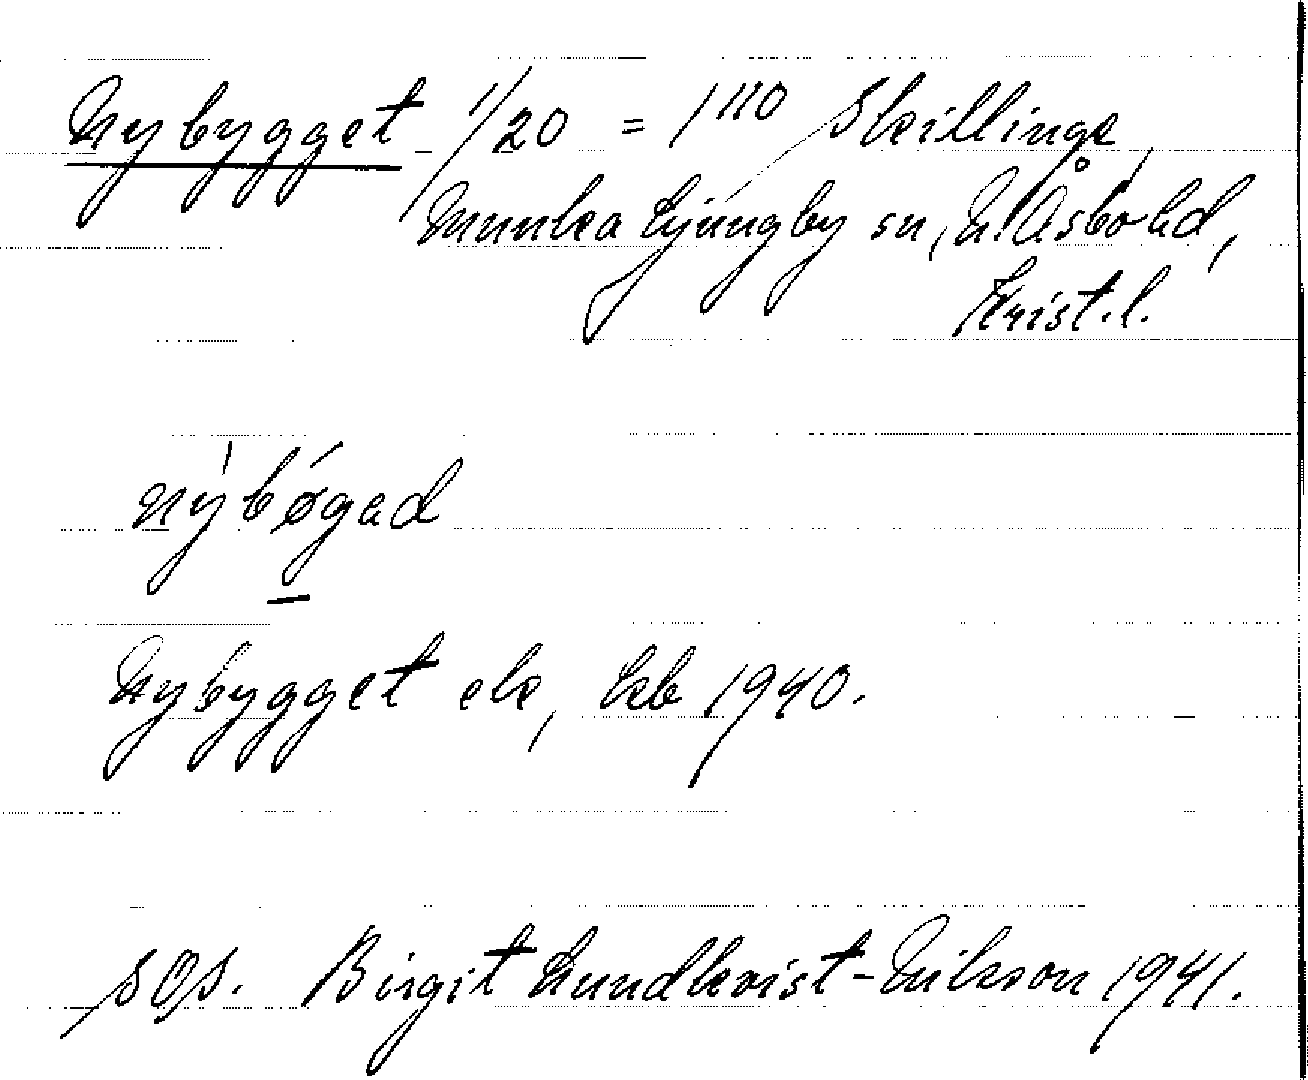 Nybygget 1/20 = 1¹¹⁰ Skillinge,
Munka Ljungby sn, N. Åsbo hd,
Krist. l.
nýbǿgad
Nybygget ek, kb 1940.
SOS. Birgit Lundkvist-Nilsson 1941.